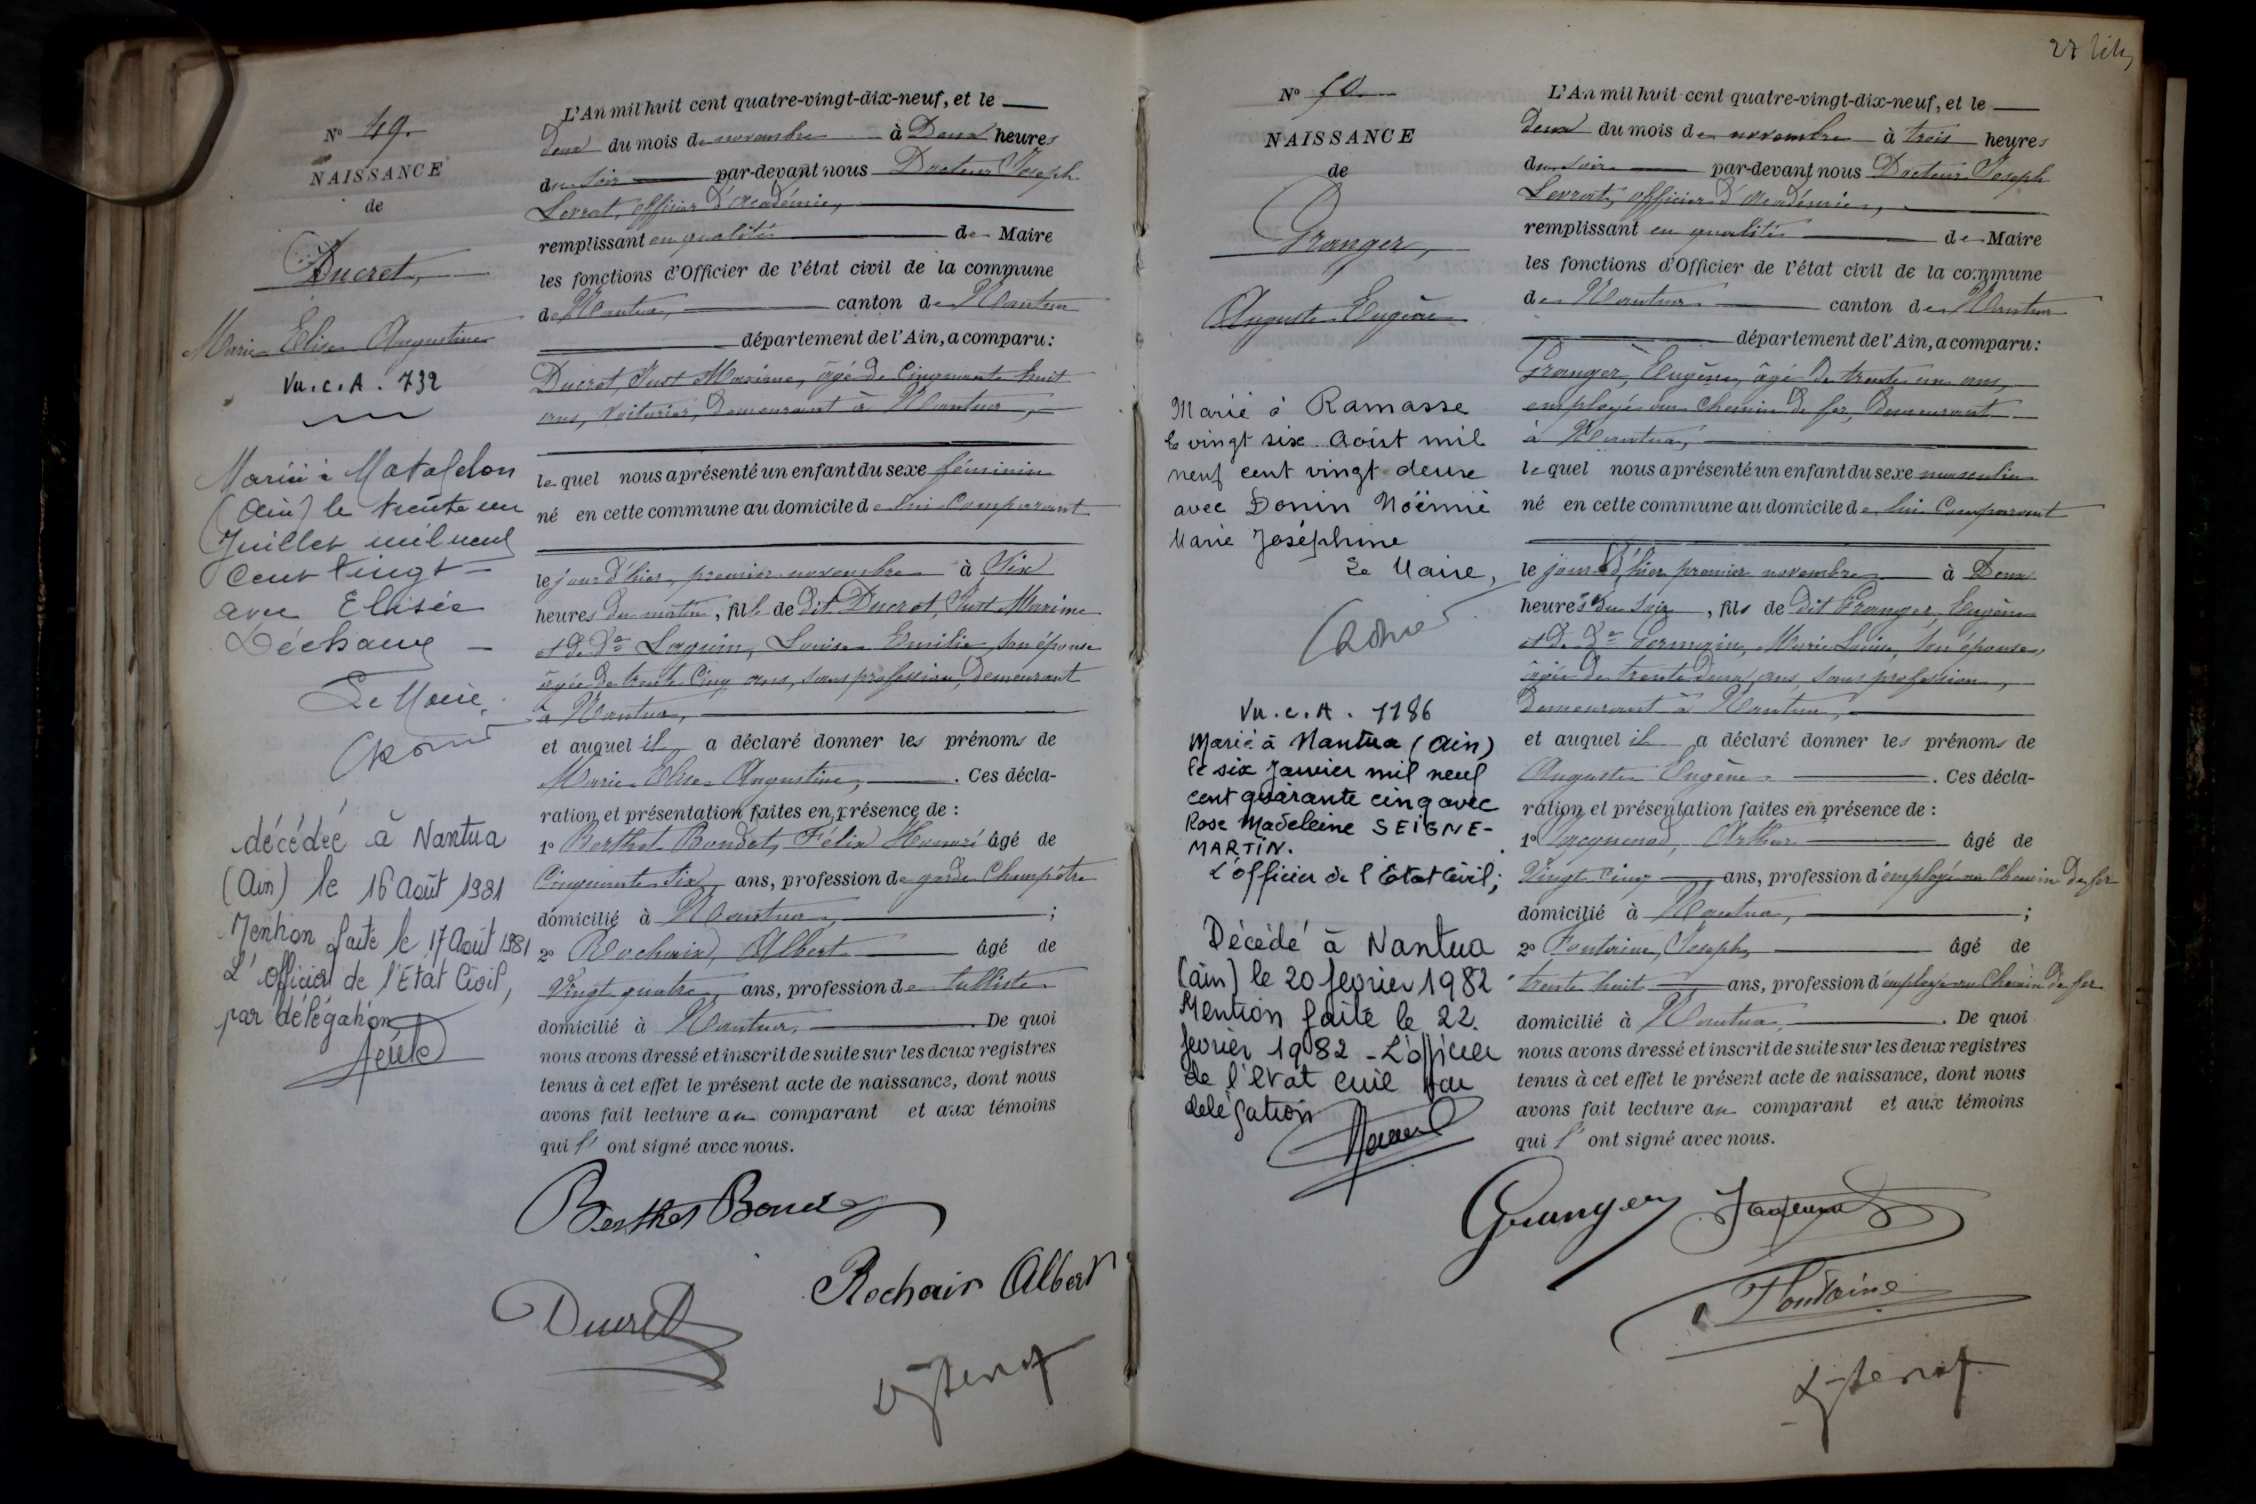 Nº 49.
NAISSANCE
de
Ducret,
Marie Elise Augustine
Vu.c.A. 732
Mariée à Matafelon
(Ain) le trente un
Juillet mil neuf
cent vingt
avec Elisée
Déchaux
Le Maire,
décédée à Nantua
(Ain) le 16 Août 1981
Mention faite le 17 Août 1981
L'officier de l'Etat Civil,
par délégation
L'An mil huit cent quatre-vingt-dix-neuf, et le
deux du mois de novembre à Deux heures
du soir par-devant nous Docteur Joseph
Levrat, officier d'Académie,
remplissant en qualité de Maire
les fonctions d'Officier de l'état civil de la commune
de Nantua, canton de Nantua
département de l'Ain, a comparu:
Ducret, Just Maxime, âgé de Cinquante huit
ans, voiturier, demeurant à Nantua,
lequel nous a présenté un enfant du sexe féminin
né en cette commune au domicile de lui Comparant
le jour d'hier, premier novembre à Six
heures du matin, fille de dit Ducret, Just Maxime
et de De Louise Emilie, son épouse
âgée de trente Cinq ans, sans profession, demeurant
à Nantua,
et auquel il a déclaré donner les prénoms de
Marie Elise Augustine, . Ces décla-
ration et présentation faites en présence de :
1º Berthet Bondet, Félix Honoré âgé de
Cinquante Six ans, profession de garde Champêtre
domicilié à Nantua, ;
2º Rochaix, Albert âgé de
Vingt quatre ans, profession de tulliste
domicilié à Nantua, . De quoi
nous avons dressé et inscrit de suite sur les deux registres
tenus à cet effet le présent acte de naissance, dont nous
avons fait lecture au comparant et aux témoins
qui l' ont signé avec nous.
Berthet Bondet
Rochaix Albert
Ducret
Nº 50.
NAISSANCE
de
Granger,
Auguste Eugène
Marié à Ramasse
le vingt six Août mil
neuf cent vingt deux
avec Donin Noëmie
Marie Joséphine
Le Maire,
Vu.c.A. 1186
Marié à Nantua (Ain)
le six Janvier mil neuf
cent quarante cinq avec
Rose Madeleine SEIGNE-
MARTIN.
L'officier de l'Etat Civil;
Décédé à Nantua
(ain) le 20 fevrier 1982
Mention faite le 22.
fevrier 1982 - L'officier
de l'Etat civil par
delégation
L'An mil huit cent quatre-vingt-dix-neuf, et le
deux du mois de novembre à trois heures
du soir par-devant nous Docteur Joseph
Levrat, officier d'Académie,
remplissant en qualité de Maire
les fonctions d'Officier de l'état civil de la commune
de Nantua canton de Nantua
département de l'Ain, a comparu:
Granger, Eugène, âgé de trente un ans,
employé au Chemin de fer, demeurant
à Nantua,
lequel nous a présenté un enfant du sexe masculin
né en cette commune au domicile de lui Comparant
le jour d'hier premier novembre à Deux
heures du soir, fils de dit Granger, Eugène
et de De Germain, Marie Louise, son épouse,
âgée de trente deux ans sans profession,
demeurant à Nantua,
et auquel il a déclaré donner les prénoms de
Auguste Eugène. . Ces décla-
ration et présentation faites en présence de :
1º Jacquenod, Arthur âgé de
Vingt Cinq ans, profession d'employé au Chemin de fer
domicilié à Nantua, ;
2º Fontaine, Joseph, âgé de
trente huit ans, profession d'employé au Chemin de fer
domicilié à Nantua, . De quoi
nous avons dressé et inscrit de suite sur les deux registres
tenus à cet effet le présent acte de naissance, dont nous
avons fait lecture au comparant et aux témoins
qui l' ont signé avec nous.
Granger
Fontaine